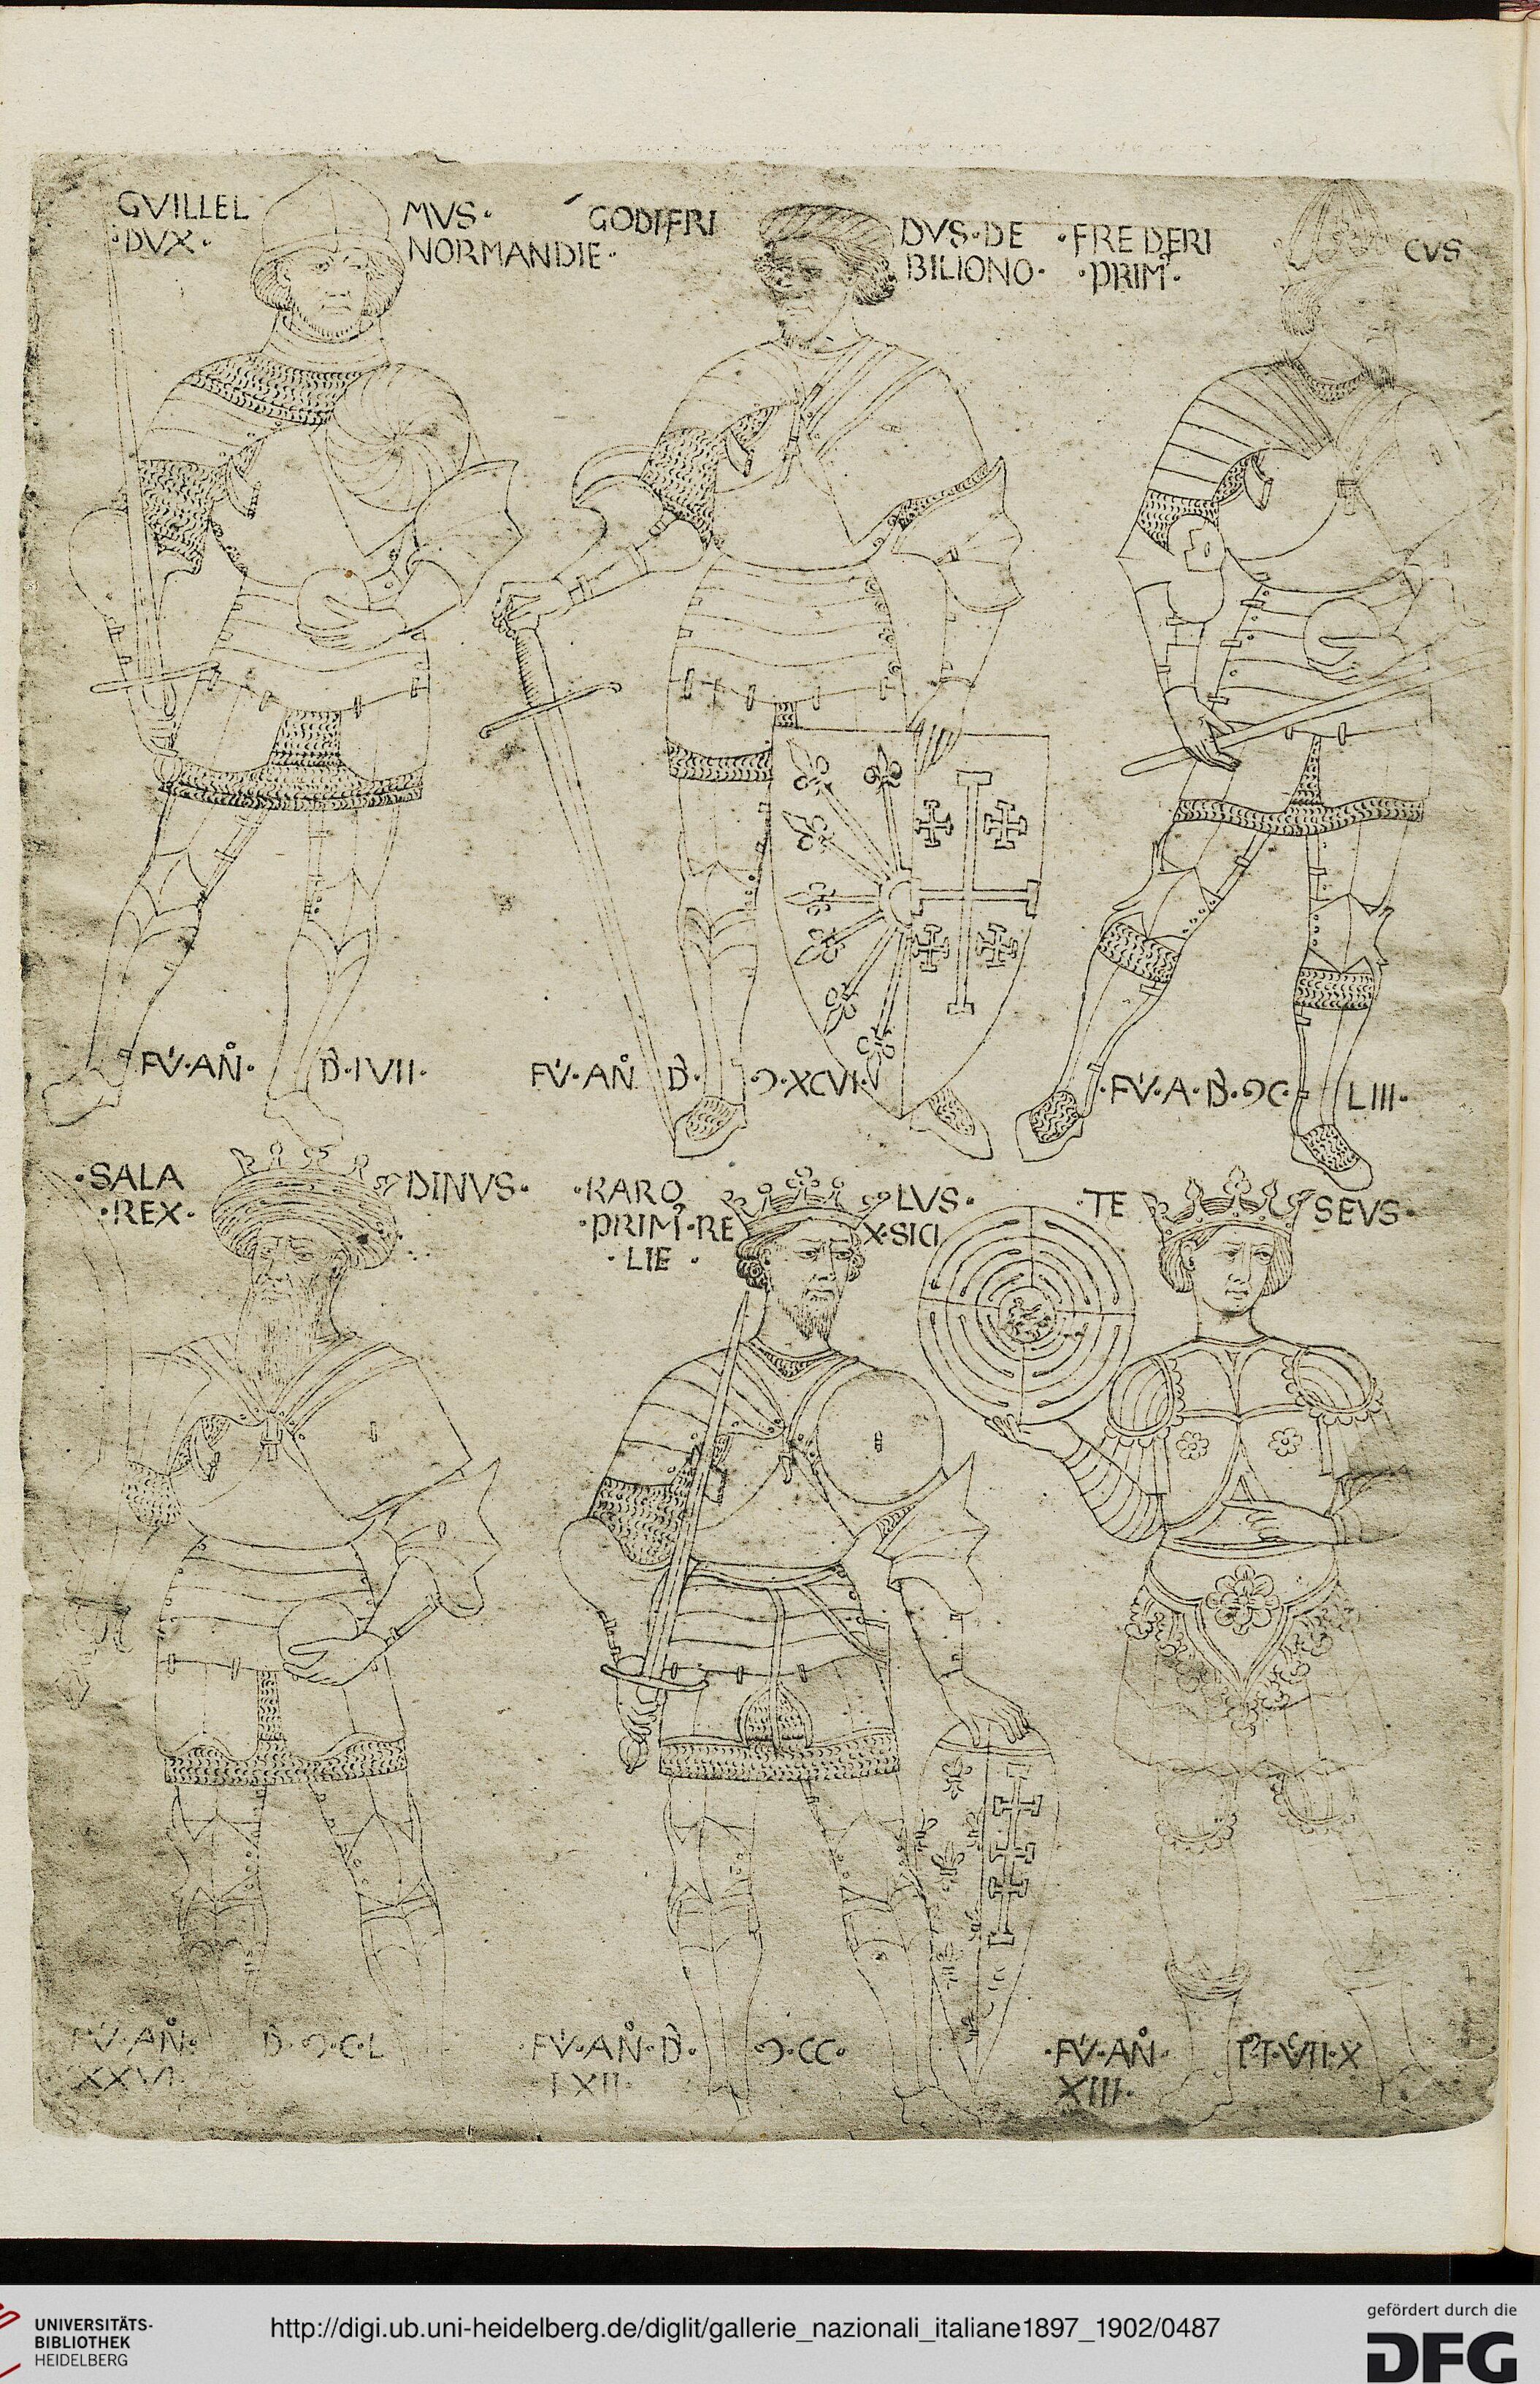 GVILLEL MVS·
·DVX· NORMANDIE·
GODIFRI DVS·DE
BILIONO·
·FREDERI CVS
·PRIM⁹·
FV·AÑ· D·IVII·
FV·AÑ D· Ͻ·XCVI·
·FV·A·D·ϽC· LIII·
·SALA DINVS·
·REX·
·KARO LVS·
·PRIM⁹·RE X·SICI
·LIE·
·TE SEVS·
FV·AÑ· D·Ͻ·C·L
XXVI
·FV·AÑ·D· Ͻ·CC·
IXII·
·FV·AÑ·
XIII·
UNIVERSITÄTS-
BIBLIOTHEK
HEIDELBERG
http://digi.ub.uni-heidelberg.de/diglit/gallerie_nazionali_italiane1897_1902/0487
gefördert durch die
DFG